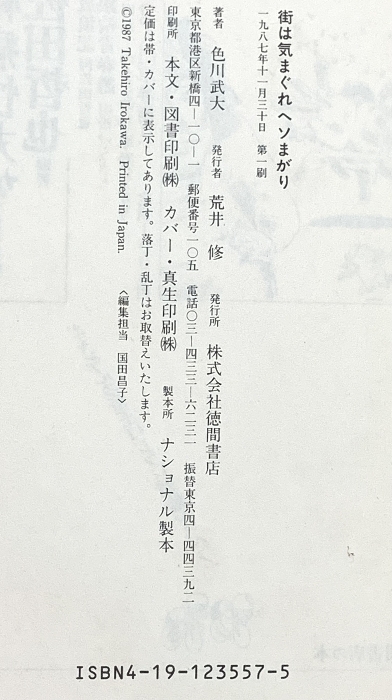 街は気まぐれヘソまがり
一九八七年十一月三十日　第一刷
著者　色川武大　発行者　荒井　修　発行所　株式会社徳間書店
東京都港区新橋四―一〇―一　郵便番号一〇五　電話〇三―四三三―六二三一　振替東京四―四四三九二
印刷所　本文・図書印刷㈱　カバー・真生印刷㈱　製本所　ナショナル製本
定価は帯・カバーに表示してあります。落丁・乱丁はお取替えいたします。
©1987 Takehiro Irokawa. Printed in Japan.　〈編集担当　国田昌子〉
ISBN4-19-123557-5